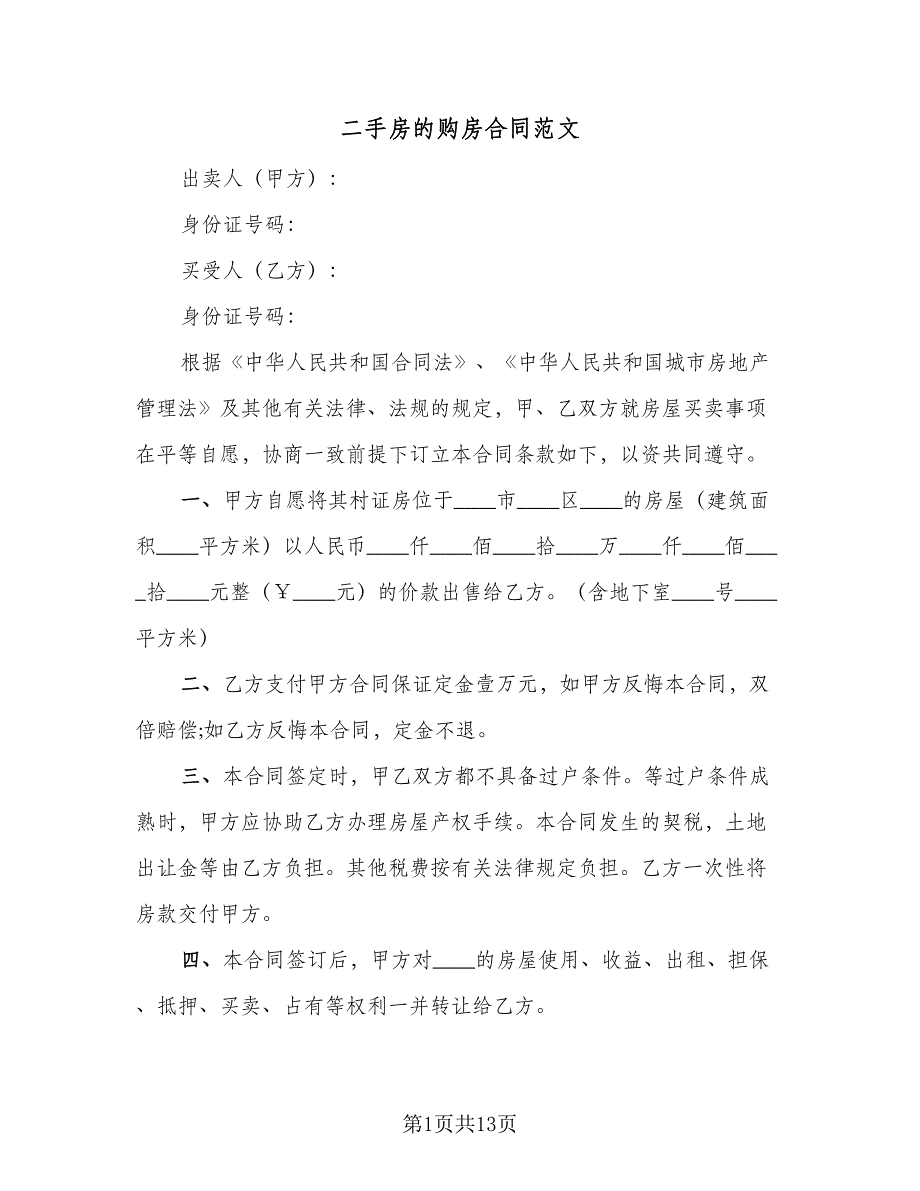 二手房的购房合同范文
出卖人（甲方）：
身份证号码：
买受人（乙方）：
身份证号码：
根据《中华人民共和国合同法》、《中华人民共和国城市房地产
管理法》及其他有关法律、法规的规定，甲、乙双方就房屋买卖事项
在平等自愿，协商一致前提下订立本合同条款如下，以资共同遵守。
一、甲方自愿将其村证房位于____市____区____的房屋（建筑面
积____平方米）以人民币____仟____佰____拾____万____仟____佰___
_拾____元整（￥____元）的价款出售给乙方。（含地下室____号____
平方米）
二、乙方支付甲方合同保证定金壹万元，如甲方反悔本合同，双
倍赔偿;如乙方反悔本合同，定金不退。
三、本合同签定时，甲乙双方都不具备过户条件。等过户条件成
熟时，甲方应协助乙方办理房屋产权手续。本合同发生的契税，土地
出让金等由乙方负担。其他税费按有关法律规定负担。乙方一次性将
房款交付甲方。
四、本合同签订后，甲方对____的房屋使用、收益、出租、担保
、抵押、买卖、占有等权利一并转让给乙方。
第1页共13页